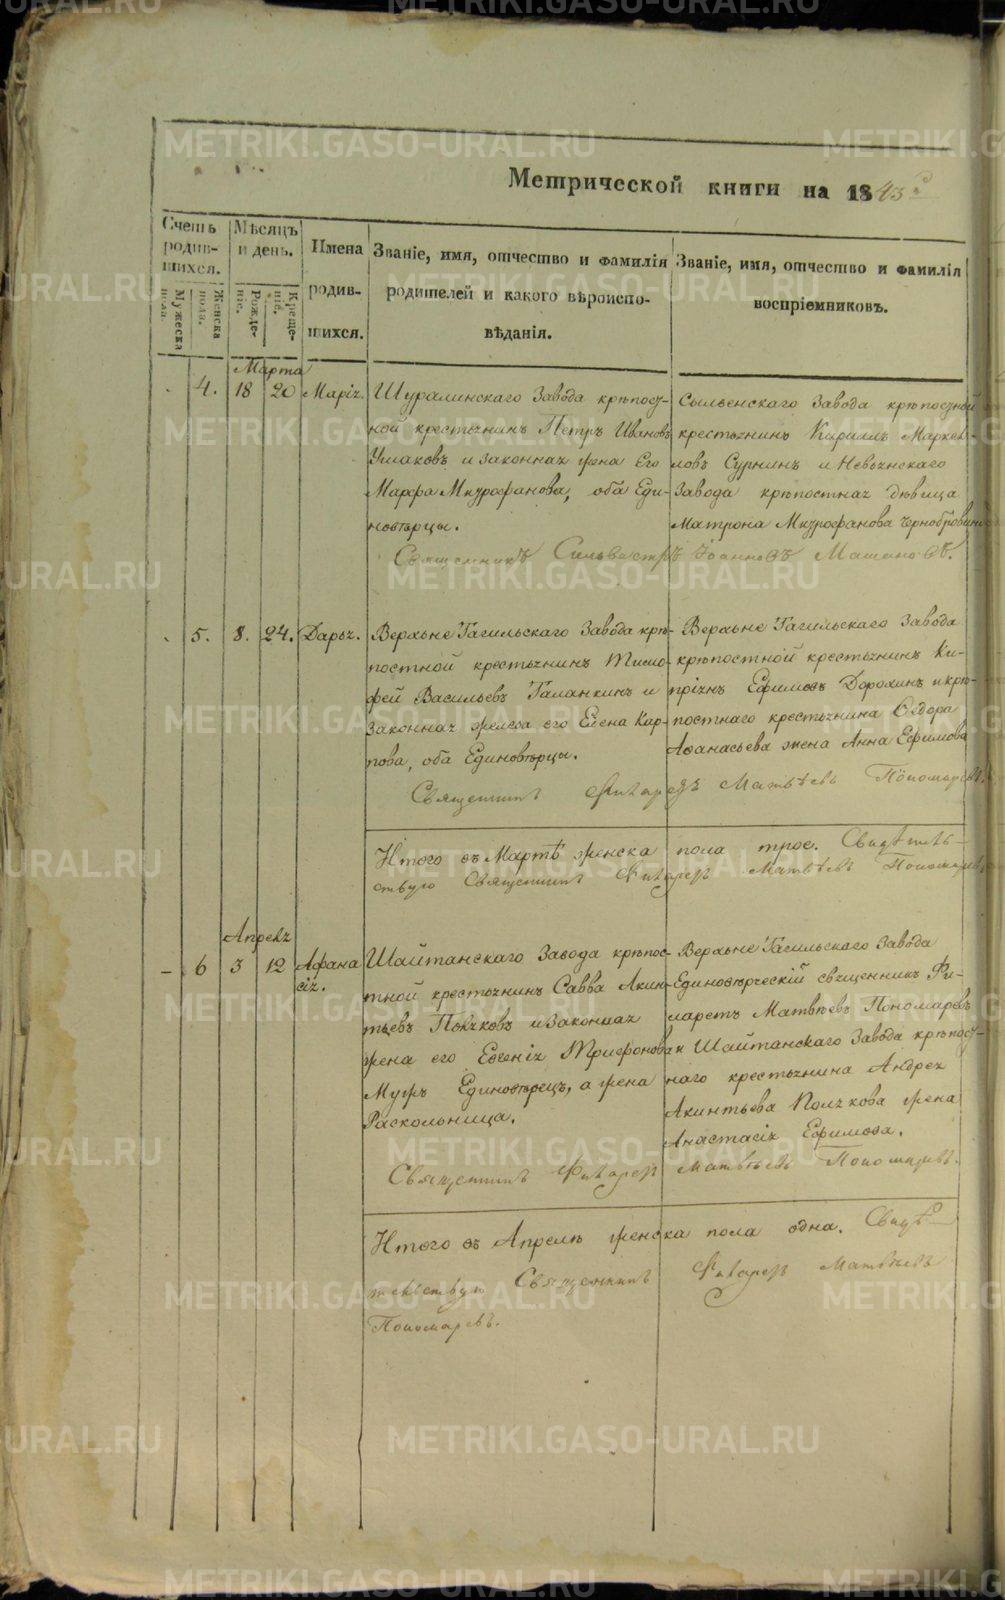 Метрической книги на 1843
Счетъ родив-шихся.
Мужеска пола.
Женска пола.
Мѣсяцъ и день.
Рожде-ніе.
Креще-ніе.
Имена родив-шихся.
Званіе, имя, отчество и фамилія
родителей и какого вѣроиспо-
вѣданія.
Званіе, имя, отчество и фамилія
воспріемниковъ.
Марта
4. 18 20 Марія.
Шуралинскаго Завода крѣпост-
ной крестьянинъ Петръ Ивановъ
Ушаковъ и законная жена Его
Марфа Митрофанова, оба Еди-
новѣрцы.
Сылвенскаго Завода крѣпостной
крестьянинъ Кириллъ Маркел-
ловъ Сурнинъ и Невьянскаго
Завода крѣпостная дѣвица
Матрона Митрофанова
Священникъ Сильвестръ Іоанновъ
5. 8. 24. Дарья.
Верхне Тагильскаго Завода крѣ-
постной крестьянинъ Тимо-
фей Васильевъ Галанкинъ и
законная его Елена Кар-
пова, оба Единовѣрцы.
Верхьне Тагильскаго Завода
крѣпостной крестьянинъ Ки-
пріянъ Ефимовъ Дорохинъ и крѣ-
постнаго крестьянина Ѳедора
Аѳанасьева жена Анна Ефимова
Священникъ Филаретъ Матвѣевъ Пономаревъ.
Итого въ Мартѣ женска пола трое. Свидѣтель-
ствую Священникъ Филаретъ Матвѣевъ Пономаревъ
Апреля
6 3 12 Афана
сія.
Шайтанскаго Завода крѣпос-
тной крестьянинъ Савва Акин-
тьевъ и законная
жена его Евгенія Трифонова
Мужъ Единовѣрецъ, а жена
Раскольница.
Верхьне Тагильскаго Завода
Единовѣрческій священникъ Фи-
ларетъ Матвѣевъ Пономаревъ
и Шайтанскаго Завода крѣпост-
наго крестьянина Андрея
Акинтьева жена
Анастасія Ефимова.
Священникъ Филаретъ Матвѣевъ Пономаревъ.
Итого въ Апрелѣ женска пола одна. Свидѣ-
тельствую Священникъ Филаретъ Матвѣевъ
Пономаревъ.
METRIKI.GASO-URAL.RU